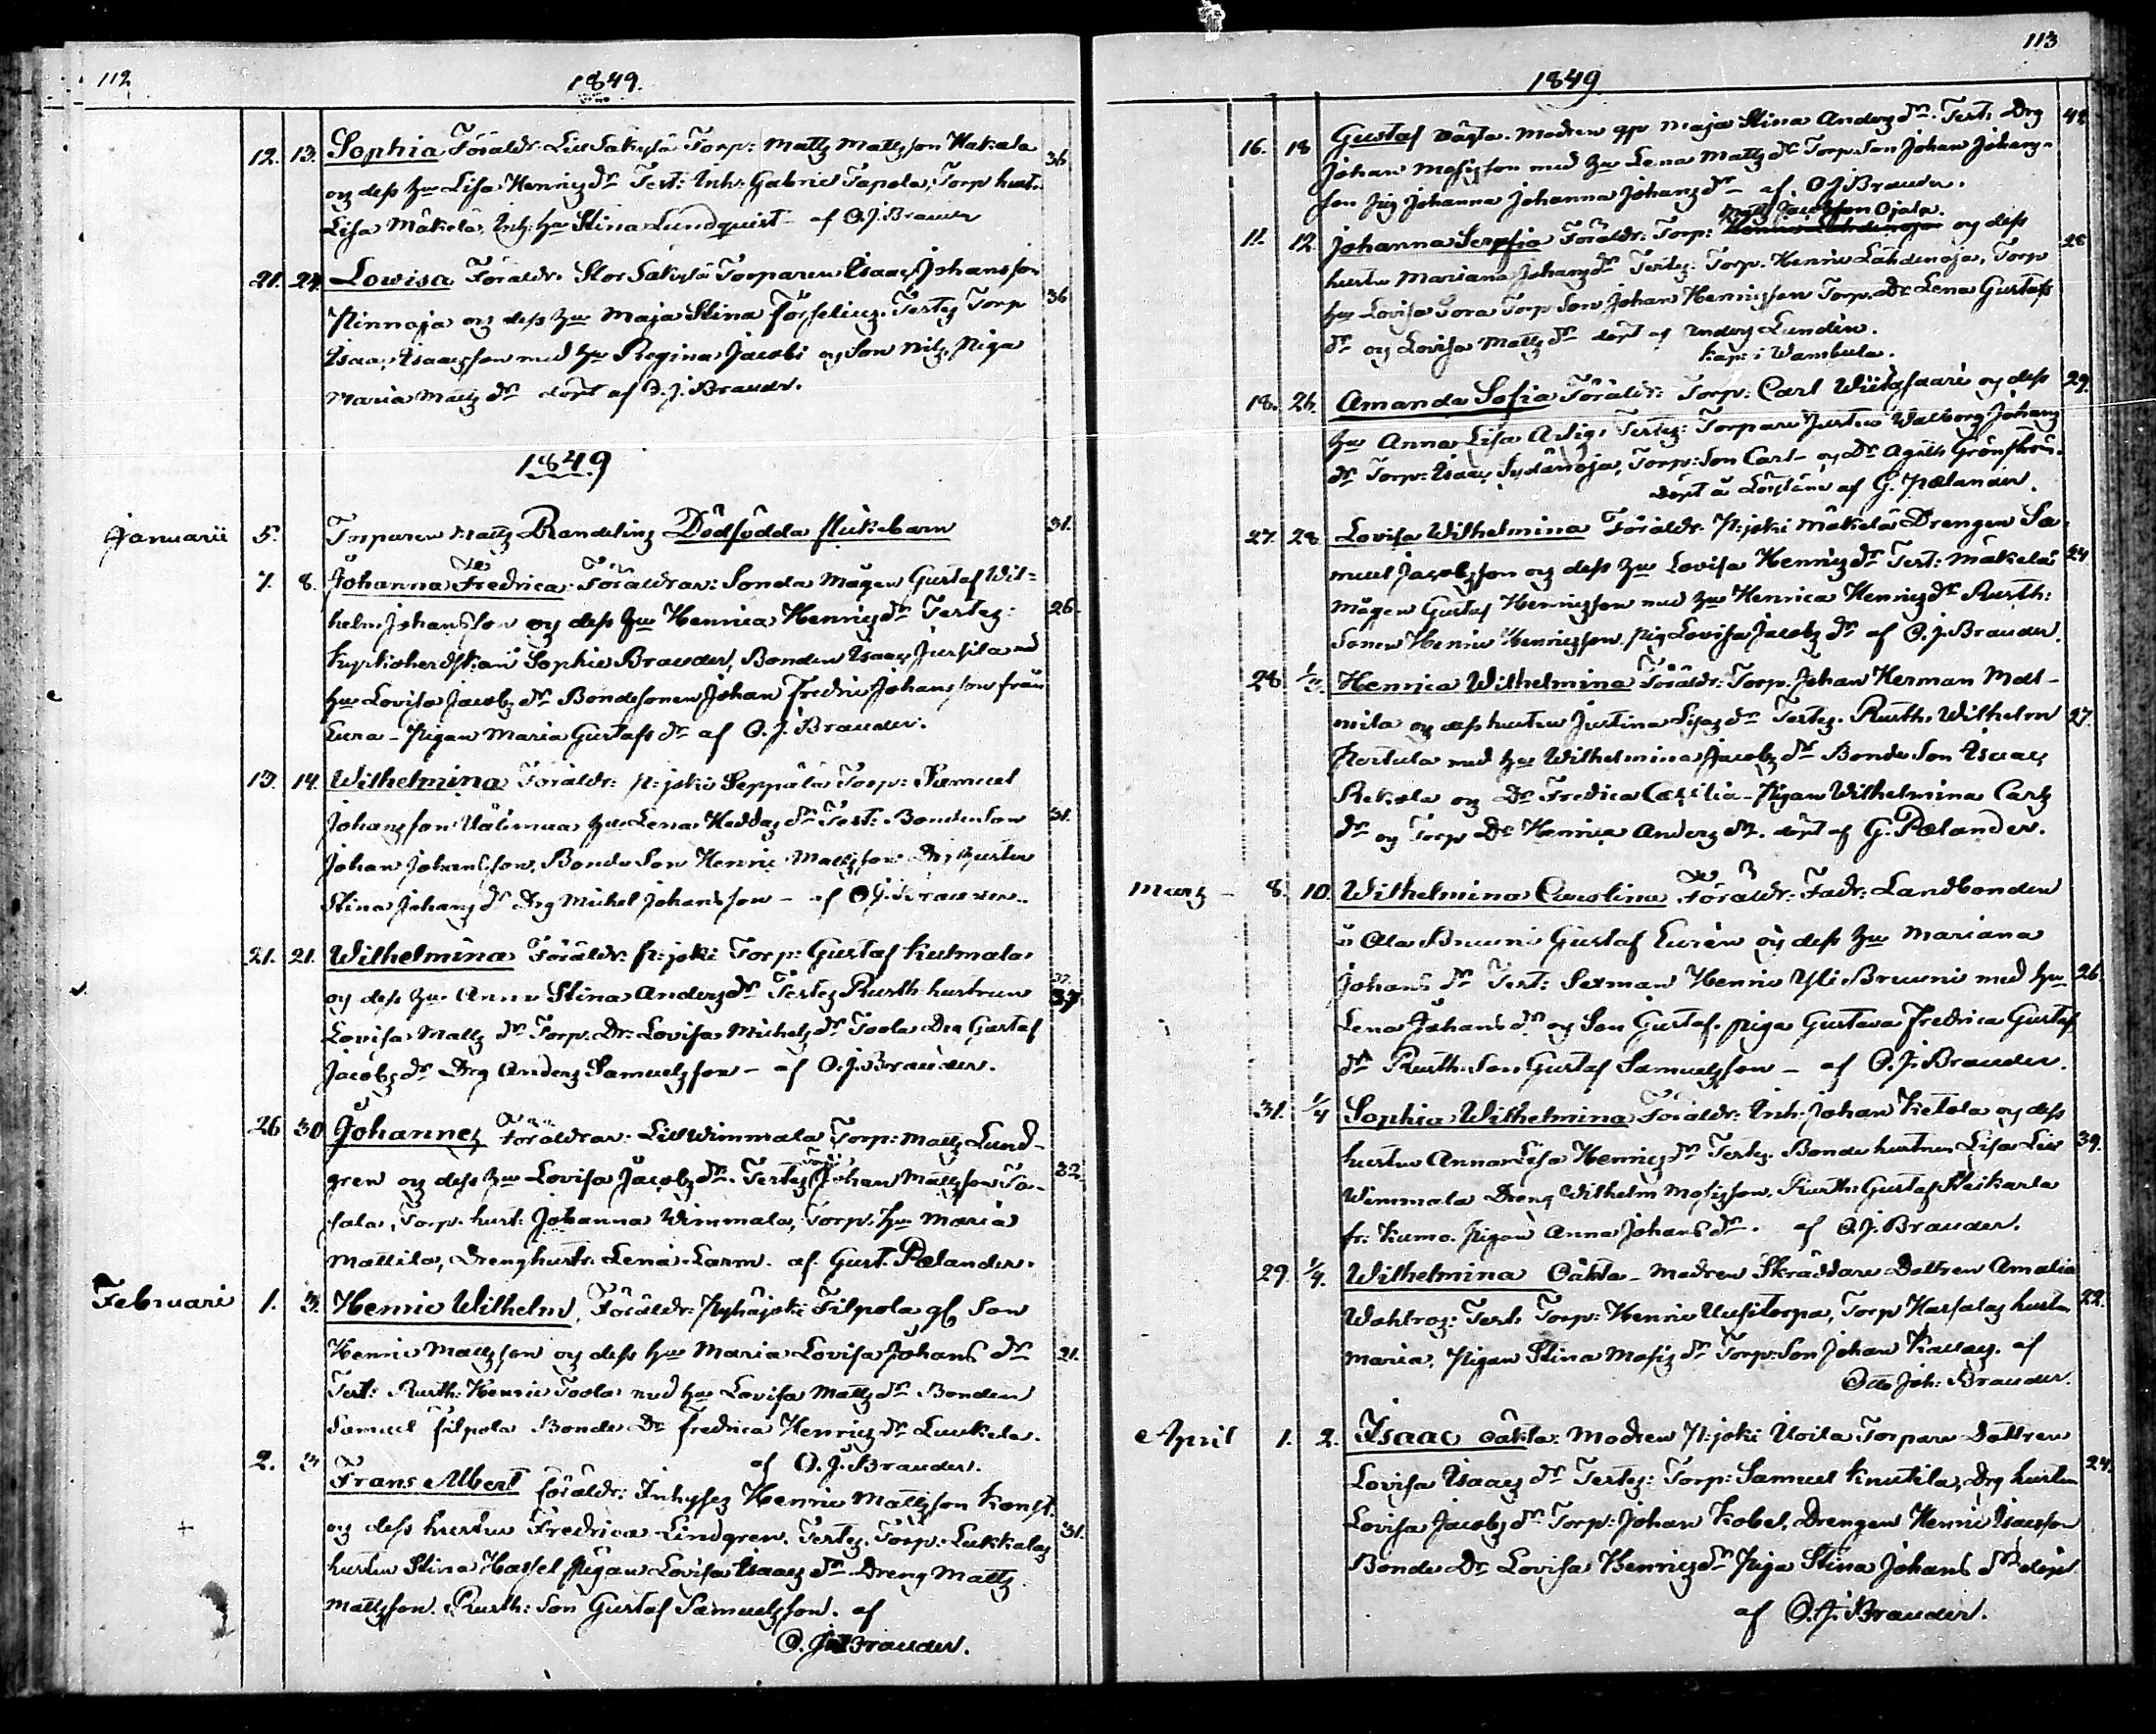 112
1849.
12. 13. Sophia Föräldr. Lill Säkylä Torp: Matts Mattsson Hakala 36
og dess hu Lisa Henricsdr Test: Inh: Gabriel Tapola, Torp hust.
Lisa Mäkelä, Inh: hu Stina Lundquist af O.J. Brander
21. 24. Lowisa Föräldr. Stor Säkylä Torparen Isaac Johansson
Ninnoja og dess hu Maja Stina Forselius. Testes Torp 36
Isaac Isaacsson med hu Regina Jacobi og Son Nils, Piga
Maria Mattsdr döpt af O.J. Brander.
1849
Januarii 5. Torparen Matts Randelins Dödfödda flickebarn 31.
7. 8. Johanna Fredrica. Föräldrar: Sonda Mågen Gustaf Wil=
helm Johansson og dess hu Henrica Henricsdr Testes: 26.
Kyrkioherdskan Sophie Brander, Bonden Isaac Jussila med
hu Lovisa Jacobsdr Bondesonen Johan Fredric Johansson från
Eura - Pigan Maria Gustafsdr af O.J. Brander.
13. 14. Wilhelmina Föräldr: P:joki Seppälä Torp: Samuel
Johansson Välimaa hu Lena Heddasdr Test: Bondeson 31.
Johan Johansson, Bonde Son Henric Mattsson Drg hustru
Stina Johansdr Drg Michel Johansson - af O.J. Brander.
21. 21. Wilhelmina Föräldr. P:joki Torp: Gustaf Kulmala
og dess hu Anna Stina Andersdr Testes Rusth: hustrun 37
Lovisa Mattsdr Torp. Dr: Lovisa Michelsdr Toola Drg Gustaf
Jacobsdr Drg Anders Samuelsson - af O.J. Brander.
26 30 Johannes Föräldrar: Lill Wimmala Torp: Matts Lund-
gren og dess hu Lovisa Jacobsdr. Testes Torp: Johan Mattsson Ta- 32
sala, Torp. hust: Johanna Wimmala, Torp. hu Maria
Mattila, Dreng hustr. Lena Larm. af Gust. Pælander.
Februari 1. 3. Henric Wilhelm, Föräldr: Pyhäjoki Filpola gl Son
Henric Mattsson og dess hu Maria Lovisa Johans dr 21.
Test: Rusth: Henric Toola med hu Lovisa Mattsdr Bonden
Samuel Filpola Bonde Dr Fredrica Henricsdr Luukela.
af O.J. Brander.
2. 3 Frans Albert föräldr: Inhyses Henric Mattsson Konst.
og dess hustru Fredrica Lindgren. Testes. Torp: Lukkalas 31.
hustru Stina Hassel pigan Lovisa Isaacsdr Dreng Matts
Mattsson. Rusth: Son Gustaf Samuelsson. af
O. J. Brander.
113
1849
16. 18 Gustaf oäkta. Modren qp Maja Stina Andersdr. Test: Drg 42
Johan Mosisson med hu Lena Mattsdr Torp. Son Johan Johans-
son Pig Johanna Johanna Johansdr - af. O.J Brander.
Matts Jacobsson Ojala.
11. 12. Johanna Serafia Föräldr: Torp: og dess 28
hustru Mariana Johansdr Testes: Torp. Henric Lähdenoja, Torp
hu Lovisa Tora Torp Son Johan Henricsson Torp. Dr Lena Gustafs
dr og Lovisa Mattsdr döpt af Anders Lundén.
Kap: i Wambula.
18. 26. Amanda Sofia Föräldr: Torp: Carl Wiitasaari og dess 29.
hu Anna Lisa Artig. Testes: Torpare hustru Walborg Johans
dr Torp: Isaac Sydänoja, Torp: Son Carl - og Dr Agata Grönström.
döpt af G. Pælander.
27. 28 Lovisa Wilhelmina Föräldr. P:joki Mäkelä Drengen Sa-
muel Jacobsson og dess hu Lovisa Henricsdr Test: Mäkelä 24.
Mågen Gustaf Henricsson med hu Henrica Henricsdr Rusth:
Sonen Henric Henricsson. Pig Lovisa Jacobsdr af O.J. Brander.
28 1/3. Henrica Wilhelmina Föräldr: Torp. Johan Herman Mat-
tila og dess hustru Justina Lisasdr Testes. Rusth: Wilhelm 27.
med hu Wilhelmina Jacobsdr Bonde Son Isaac
Rekola og Dr Fredrica Cæcilia - Pigan Wilhelmina Carls
dr og Torp Dr Henrica Andersdr. döpt af G. Pælander.
Marz - 8. 10. Wilhelmina Carolina Föräldr: Fadr: Landbonden
å Ala Bruuni Gustaf Eurén og dess hu Mariana
Johans dr Test: Sexman Henric Yli Bruuni med hu 26.
Lena Johansdr og Son Gustaf. piga Gustava Fredrica Gustaf
dr Rusth. Son Gustaf Samuelsson - af O.J. Brander.
31. 1/4 Sophia Wilhelmina Föräldr: Inh: Johan Ketola og dess
hustru Anna Lisa Henricsdr Testes. Bonde hustrun Lisa Lill 39.
Wimmala Dreng Wilhelm Mosisson, Rusth: Gustaf
fr: Kumo. Pigan Anna Johansdr. af O.J. Brander.
29. 1/4. Wilhelmina Oäkta - Modren Skräddare Dottren Amalia
Wahlros: Test. Torp: Henric Uusitorpa, Torp Hassalas hustru 22.
Maria, Pigan Stina Mosisdr Torp: Son Johan Kallas. af
Otto Joh: Brander.
April 1. 2. Isaac oäkta: Modren P:joki Uoila Torpare Dottren
Lovisa Isaacsdr Testes: Torp: Samuel Knutila, Drg hustru 24.
Lovisa Jacobsdr Torp: Johan Kobel, Drengen Henric Isacsson
Bonde Dr Lovisa Henricsdr Piga Stina Johans dr döpt
af O.J. Brander.